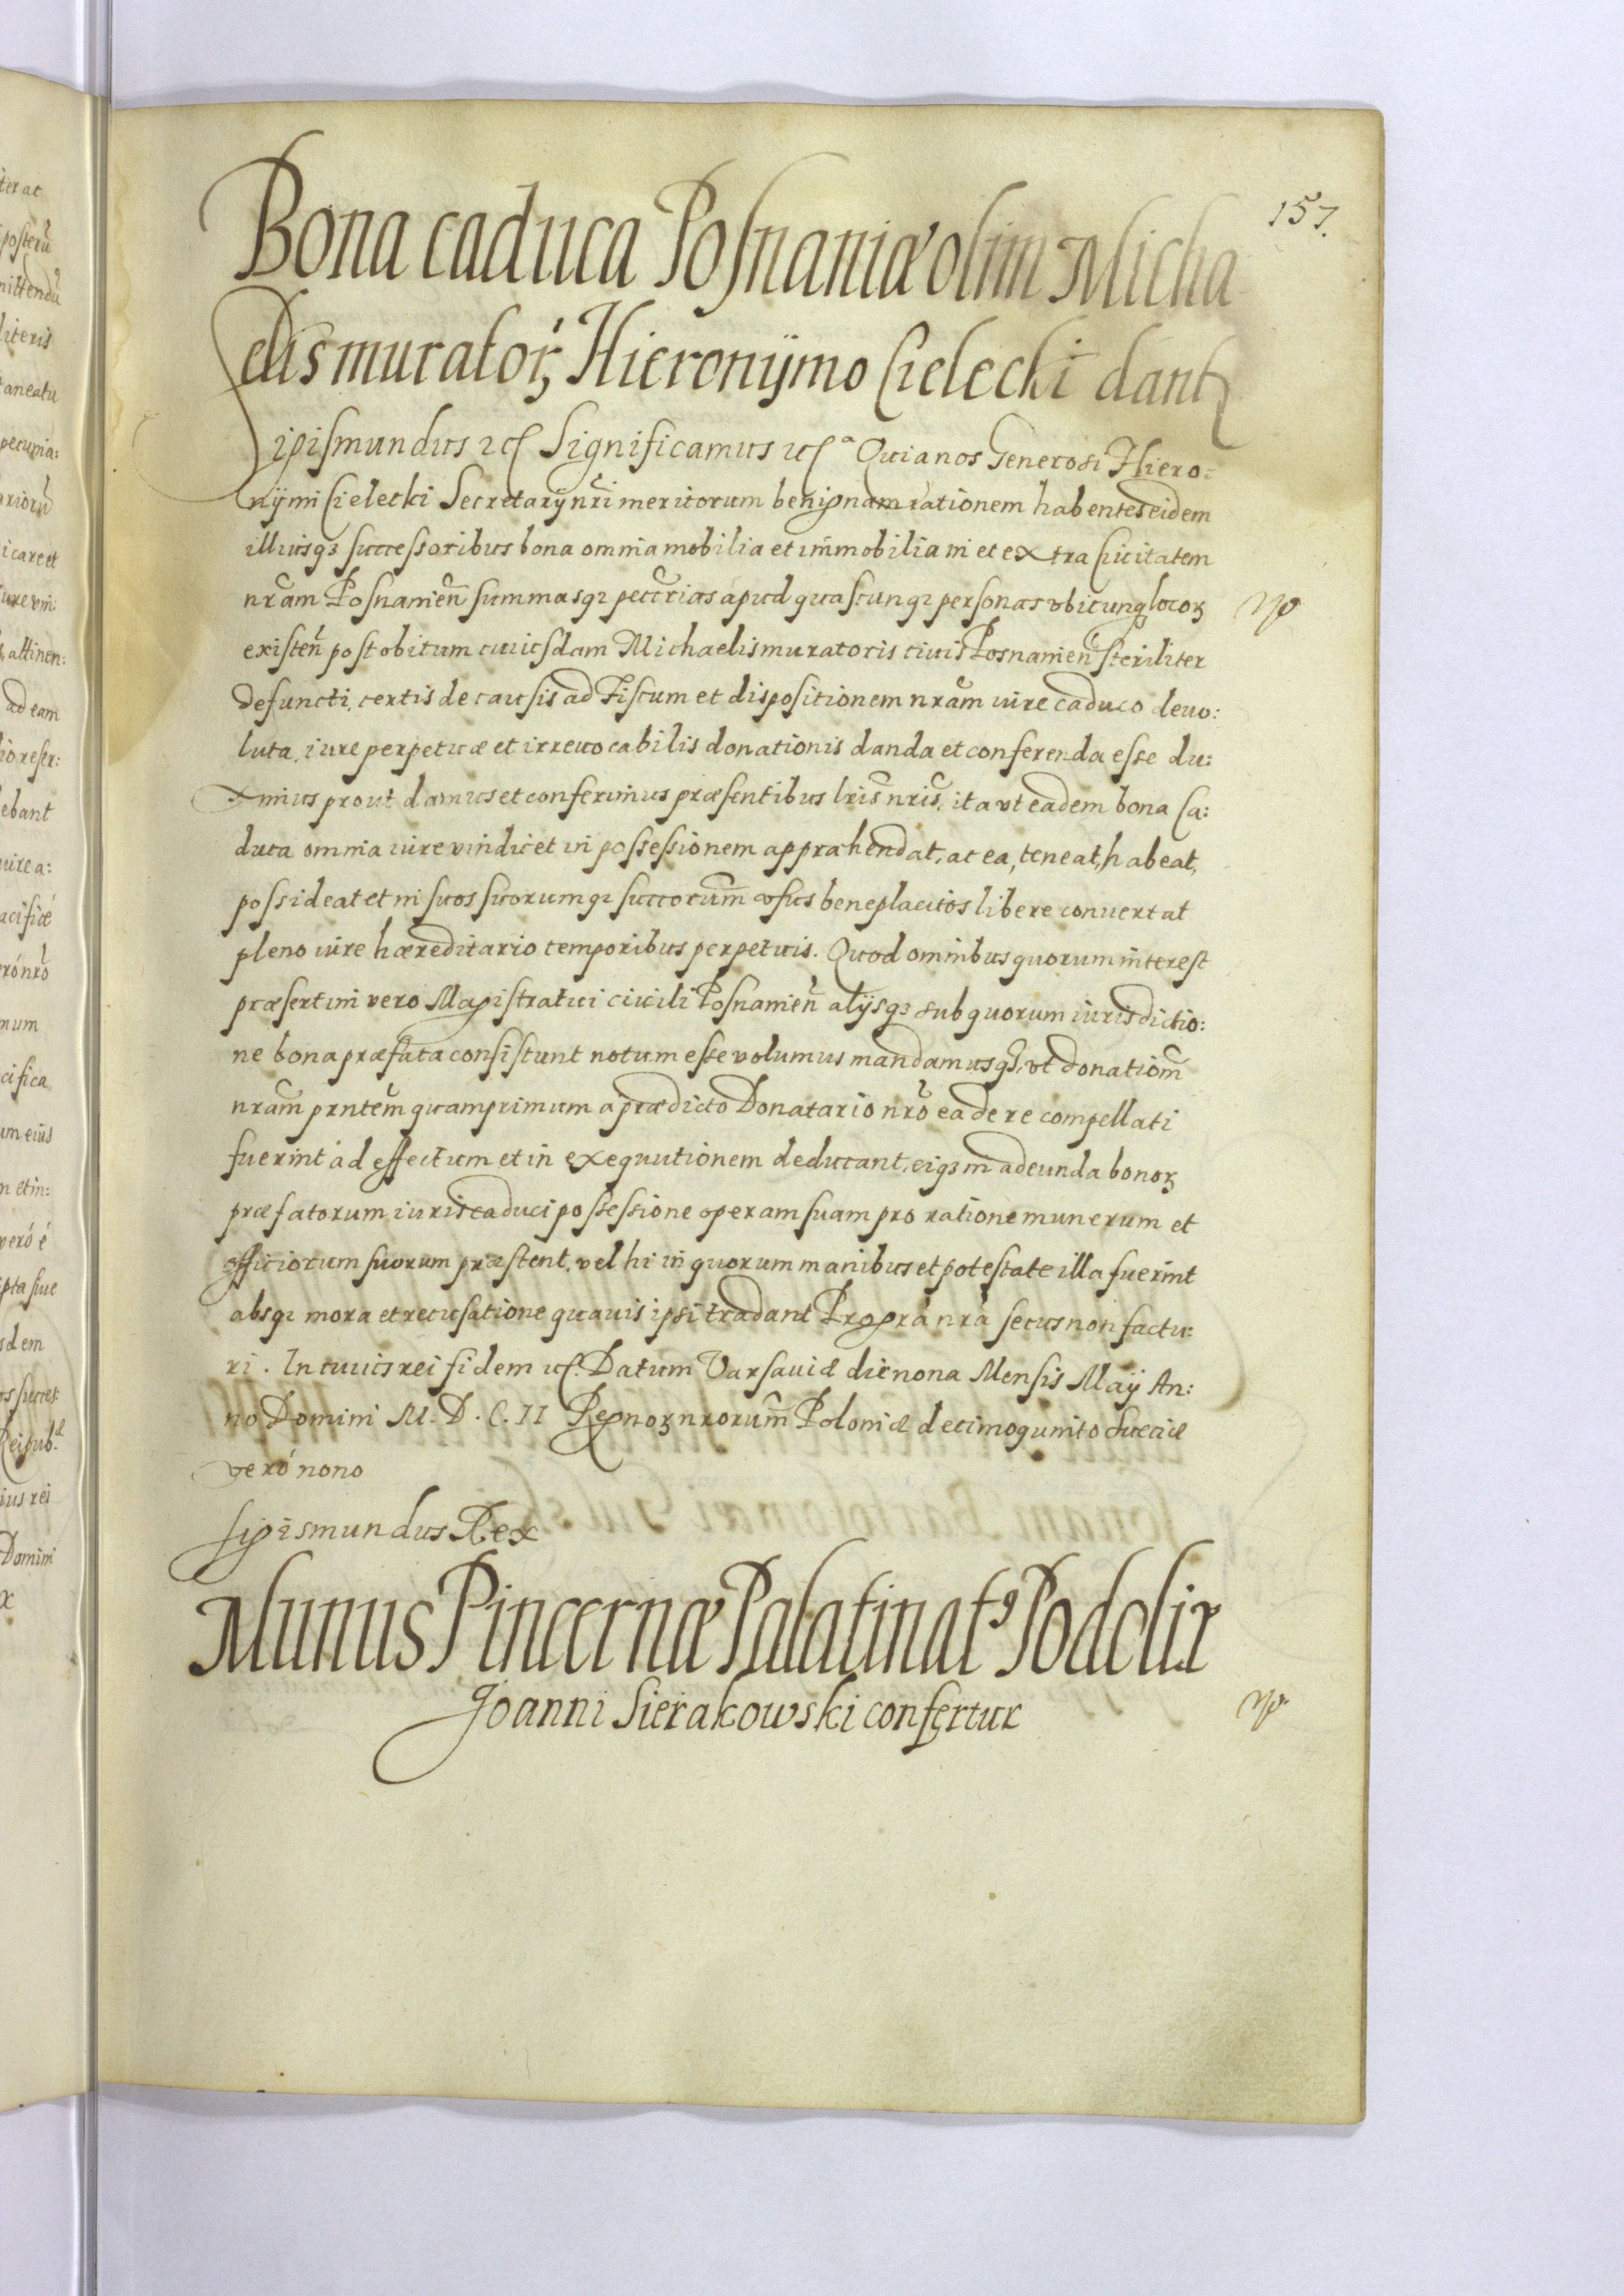 157.
Bona caduca Posnaniæ olim Micha
elis murator, Hieronÿmo Cielecki dant
Sigismundus etc Significamus etc a Quia nos Generosi Hiero:
nÿmi Cielecki Secretarÿ nri meritorum benignam rationem habentes eidem
illiusq3 successoribus bona omnia mobilia et immobilia in et extra Civitatem
nram Posnanien summasq3 pecurias apud quascunq3 personas vbicunq locoꝝ
no
existen post obitum cuiusdam Michaelis muratoris civis Posnanien steriliter
defuncti, certis de causis ad Fiscum et dispositionem nram iure caduco devo:
luta, iure perpetuæ et irrevocabilis donationis danda et conferenda esse du:
ximus prout damus et conferimus præsentibus lris nris, ita vt eadem bona Ca:
duca omnia iure vindicet in possessionem apprahendat, ac ea, teneat, habeat,
possideat et in suos suorumq3 succorum vsus beneplacitos libere convertat
pleno iure hæreditario temporibus perpetuis. Quod omnibus quorum interest
præsertim vero Magistratui civili Posnanien alÿsq3 sub quorum iurisdictio:
ne bona præfata consistunt notum esse volumus mandamusq3, vt donationm
nram prntem quamprimum a prædicto Donatario nro ea de re compellati
fuerint ad effectum et in exequutionem deducant, eiq3 in adeunda bonoꝝ
præfatorum iuris caduci possessione operam suam pro ratione munerum et
officiorum suorum præstent, vel hi in quorum manibus et potestate illa fuerint
absq3 mora et recusatione quavis ipsi tradant Pro gra nra secus non factu:
ri. In cuius rei fidem etc. Datum Varsaviæ die nona Mensis Maÿ An:
no Domini M. D. C. II Regnoꝝ nrorum Poloniæ decimoquinto Sueciæ
veró nono
Sigismundus Rex
Munus Pincernæ Palatinat9 Podoliæ
Joanni Sierakowski confertur
no